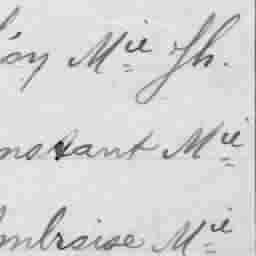 öy M^ie Jh.
nstant M^ie
mbroise M^ie